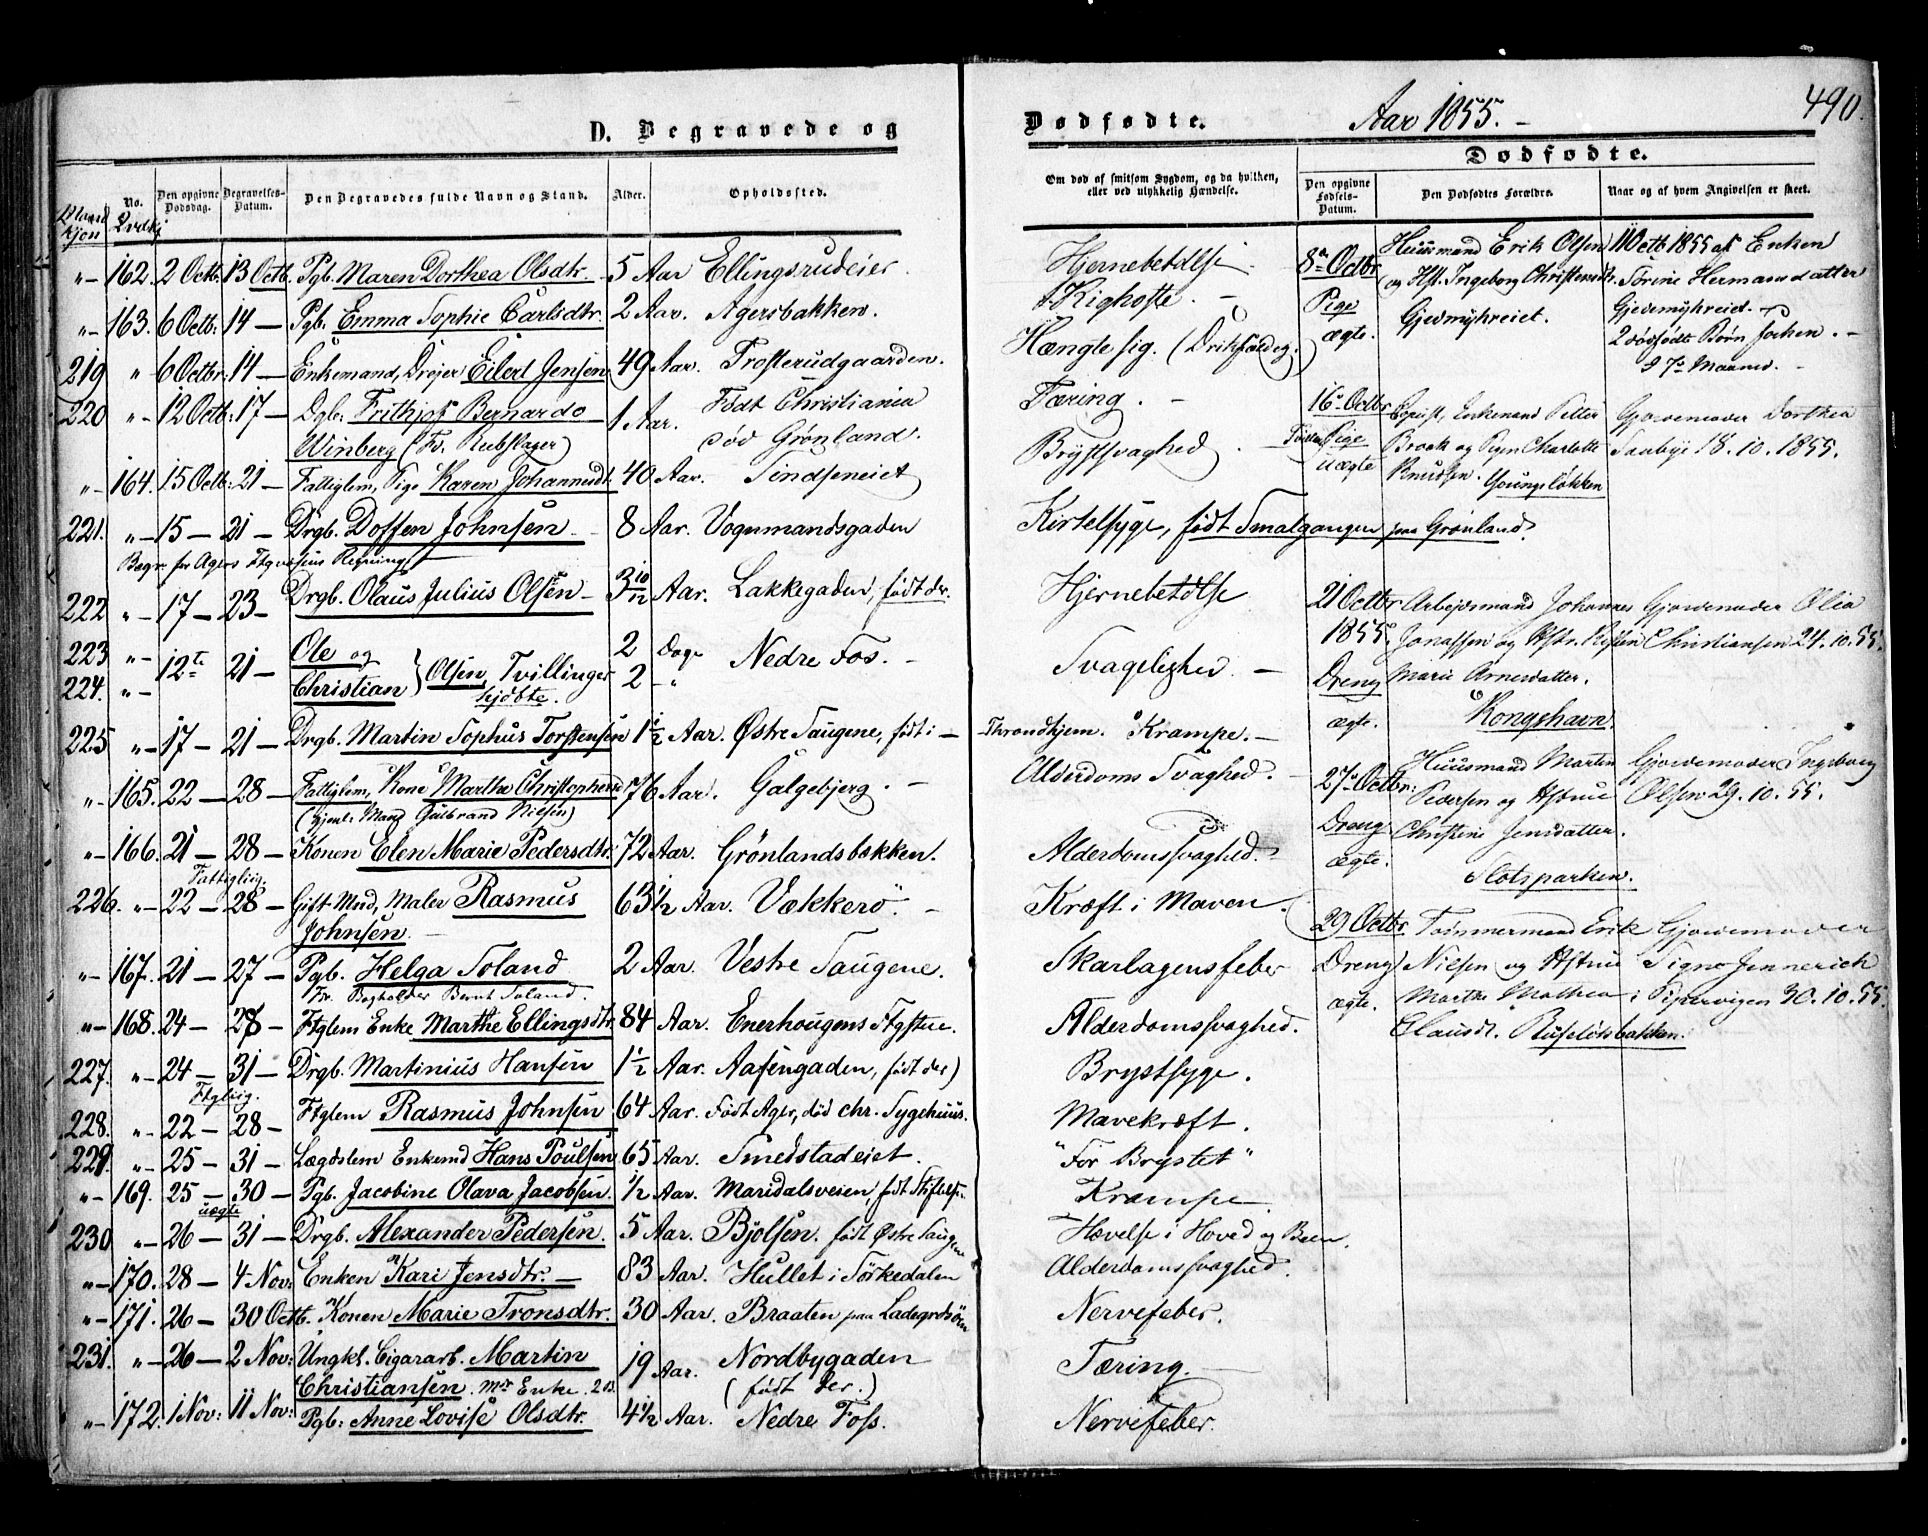 D. Begravede og
Dødfødte.
Aar 1855.
490.
Dødfødte.
No.
Den opgivne Dødsdag.
Begravelses-Datum.
Den Begravedes fulde Navn og Stand.
Alder.
Opholdssted.
Om død af smitsom Sygdom, og da hvilken, eller ved ulykkelig Hændelse.
Den opgivne Fødsels-Datum.
Den Dødfødtes Forældre.
Naar og af hvem Angivelsen er skeet.
Mand kjøn Qvdkj
"- 162. 2 Octb. 13 Octb. Pgb. Maren Dorthea Olsdtr. 5 Aar Ellingsrudeier. Hjernebetdlse
"- 163. 6 Octb. 14 - Pgb. Emma Sophie Carlsdtr. 2 Aar. Agersbakken. Kighoste. -
219 " 6 Octbr. 14 - Enkemand, Drejer Eilert Jensen 49 Aar. Trosterudgaarden. Hængte sig. (Drikfældig.)
220 "- 12 Octb. 17 - Dgb. Frithjof Bernardo 1 Aar. Født Christiania Tæring. -
Winberg (Fr. Rebslager) død Grønland. Brystsvaghed
"- 164. 15 Octb. 21 - Fattiglem, Pige Karen Johannesdt. 40 Aar. Tindseneiet
221. "- 15 - 21 - Drgb. Doffen Johnsen 8 Aar. Vognmandsgaden Kirtelsyge, født Smalgangen paa Grønland.
Begr. for Agers Regning
222 "- 17 - 23 - Drgb. Olaus Julius Olsen - 3 10/12 Aar. Lakkegaden, født der. Hjernebetdlse
223 "- 12te 21 - Ole og 2 Dage Nedre Fos. - Svaghed -
224. "- Christian } Olsen, Tvillinger 2 - "
hjdøbte.
225 "- 17 - 21 - Drgb. Martin Sophus Torstensen 1 1/2 Aar. Østre Saugene, født i - Throndhjem. Krampe. -
"- 165. 22 - 28 - Fattiglem, Kone Marthe Christophersd 76 Aar. Galgebjerg. - Alderdoms Svaghed. -
(Mand Gulbrand Nielsen)
"- 166. 21 - 28 - Konen Elen Marie Pedersdtr. 72 Aar. Grønlandsbakken. Alderdomssvaghed.
Fattiglig.
226. "- 22 - 28 - Gift Mnd, Maler Rasmus 63 1/2 Aar. Vækkerø. - Kræft i Maven.
Johnsen.
"- 167. 21 - 27 - Pgb. Helga Soland 2 Aar. Vestre Saugene. Skarlagensfeber
Fr. Bogholder Bernt Soland.
"- 168. 24 - 28 - Ftglem Enke Marthe Ellingsdtr. 84 Aar. Enerhougens Ftgstue. Alderdomssvaghed.
227. "- 24 - 31 - Drgb. Martinius Hansen 1 1/2 Aar. Aasengaden, født der) Brystsyge.
Ftglig.
228. "- 22 - 28 - Ftglem Rasmus Johnsen 64 Aar. Født Ager, død chr. Sygehuus. Mavekræft.
229. "- 25 - 31 - Lægdslem Enkemd Hans Poulsen 65 Aar. Smedstadeiet. "For Brystet"
"- 169. 25 - 30 - Pgb. Jacobine Olava Jacobsen. 1/2 Aar. Maridalsveien, født Stiftelse. Krampe
uægte
230 "- 26 - 31 - Drgb. Alexander Pedersen. 5 Aar. Bjølsen. født Østre Saugene Hævelse i Hoved og Been.
"- 170. 28 - 4 Nov: Enken Kari Jensdtr. - 83 Aar. Hullet i Sørkedalen Alderdomssvaghed.
"- 171. 26 - 30 Octb. Konen Marie Tronsdtr. 30 Aar. Braaten paa Ladegrdsøen Nervefeber.
231. "- 26 - 2 Nov: Ungkl. Cigararb. Martin 19 Aar. Nordbygaden Tæring.
Christiansen. Enke. (født der.)
"- 172. 1 Nov: 11 Nov: Pgb: Anne Lovise Olsdtr. 4 1/2 Aar. Nedre Foss. Nervefeber.
8de Octbr. Huusmand Erik Olsen 11 Octb 1855 af Enken
og Hst. Ingeborg Christensdtr. Sørine Hermansdatter
Pige Gjedmyhreiet. Gjedemyhreiet. -
ægte. 2 dødfødte Børn
7 Maaned. -
16 Octbr Enkemand Petter Gjordemoder Dorthea
Pige Brock og Pigen Charlotte Sanbye 18.10.1855.
uægte Knudsen. Youngsløkken
21 Octbr Arbejdsmand Johannes Gjordemoder Olia
1855. Jonassen og Hstr. Christiansen 24.10.55.
Dreng Marie Arnesdatter.
ægte. Kongshavn.
27 Octbr. Huusmand Martin Gjordemoder Ingeborg
Pedersen og Hstrue Olsen 29.10.55.
Dreng Christine Jensdatter.
ægte. Slotsparken.
29 Octbr. Tømmermand Erik Gjordemoder
Dreng Nielsen og Hstrue Signe Jennerich
ægte. Marthe Mathea i Pipervigen 30.10.55.
Clausdt. Ruseløkbakken.